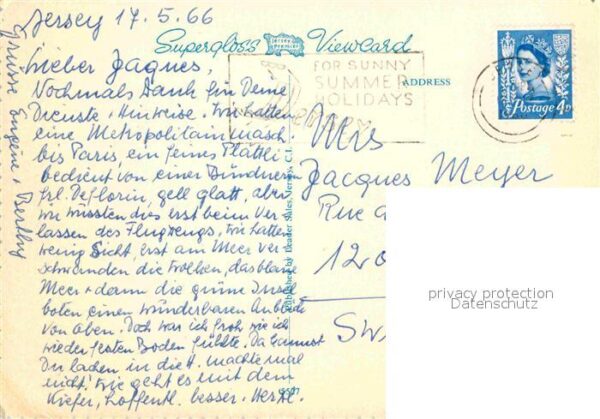 Jersey 17.5.66
Supergloss Viewcard
Jersey Premier
Lieber Jaques,
Nochmals Dank für Deine
Dienste + Hinweise. Wir hatten
eine Metropolitain masch
bis Paris, ein feines Plättli
bedient von einer Bündnerin
Frl. Deflorin, gell glatt, aber
wir wussten dies erst beim Ver
lassen des Flugzeugs. Wir hatten
wenig Sicht, erst am Meer ver
schwanden die Wolken, das blaue
Meer + dann die grüne Insel
boten einen wunderbaren Anblick
von oben. Doch war ich froh wie ich
wieder festen Boden fühlte. Da kannst
Du lachen in die H. machte mal
nicht. Wie geht es mit dem
Kiefer, hoffentl. besser. Herzl.
Grüsse Eugene + Berthy
FOR SUNNY
SUMMER
HOLIDAYS
ADDRESS
Postage 4D
Mrs
Jacques Meyer
Rue d
120
SW
Published by Leader Sales, Jersey, C.I.
privacy protection
Datenschutz